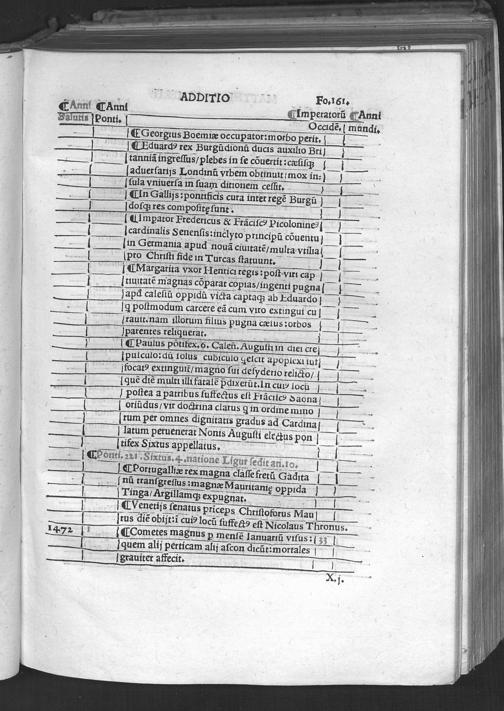 ADDITIO Fo.161.
¶Anni ¶Anni ¶Imperatorũ ¶Anni
Salutis Ponti. Occidẽ. mundi.
¶Georgius Boemiæ occupator: morbo perit.
¶Eduardꝰ rex Burgũdionũ ducis auxilio Bri
tanniã ingressus/ plebes in se cõuertit: cæsisqȝ
aduersarijs Londinũ vrbem obtinuit: mox in:
sula vniuersa in suam ditionem cessit.
¶In Gallijs: pontificis cura inter regẽ Burgũ
dosqȝ res compositę sunt.
¶Impator Fredericus & Frãciscꝰ Picolomineꝰ
cardinalis Senensis: inclyto principũ cõuentu
in Germania apud nouã ciuitatẽ/ multa vtilia
pro Christi fide in Turcas statuunt.
¶Margarita vxor Henrici regis: post viri cap
tiuitatẽ magnas cõparat copias/ ingenti pugna
apd calesiũ oppidũ victa captaqȝ ab Eduardo
q postmodum carcere eã cum viro extingui cu
rauit. nam illorum filius pugna cæsus: orbos
parentes reliquerat.
¶Paulus põtifex. 6. Calen. Augusti in diei cre
pusculo: dũ solus cubiculo qescit apoplexi suf
focatꝰ extinguit/ magno sui desyderio relicto/
quẽ diẽ multi illi fatalẽ pdixerũt. In cuiꝰ locũ
postea a patribus suffectus est Frãciscꝰ Saona
oriũdus/ vir doctrina clarus q in ordine mino
rum per omnes dignitatis gradus ad Cardina
latum peruenerat Nonis Augusti electus pon
tifex Sixtus appellatus.
¶Ponti. 221. Sixtus. 4. natione Ligur sedit an. 10.
¶Portugalliæ rex magna classe fretũ Gadita
nũ transgressus: magnæ Mauritanię oppida
Tinga/ Argillamqȝ expugnat.
¶Venetijs senatus prĩceps Christoforus Mau
rus diẽ obijt: ĩ cuiꝰ locũ suffectꝰ est Nicolaus Thronus.
1472 ¶Cometes magnus p mensẽ Ianuariũ visus: 33
quem alij perticam alij ascon dicũt: mortales
grauiter affecit.
X.j.